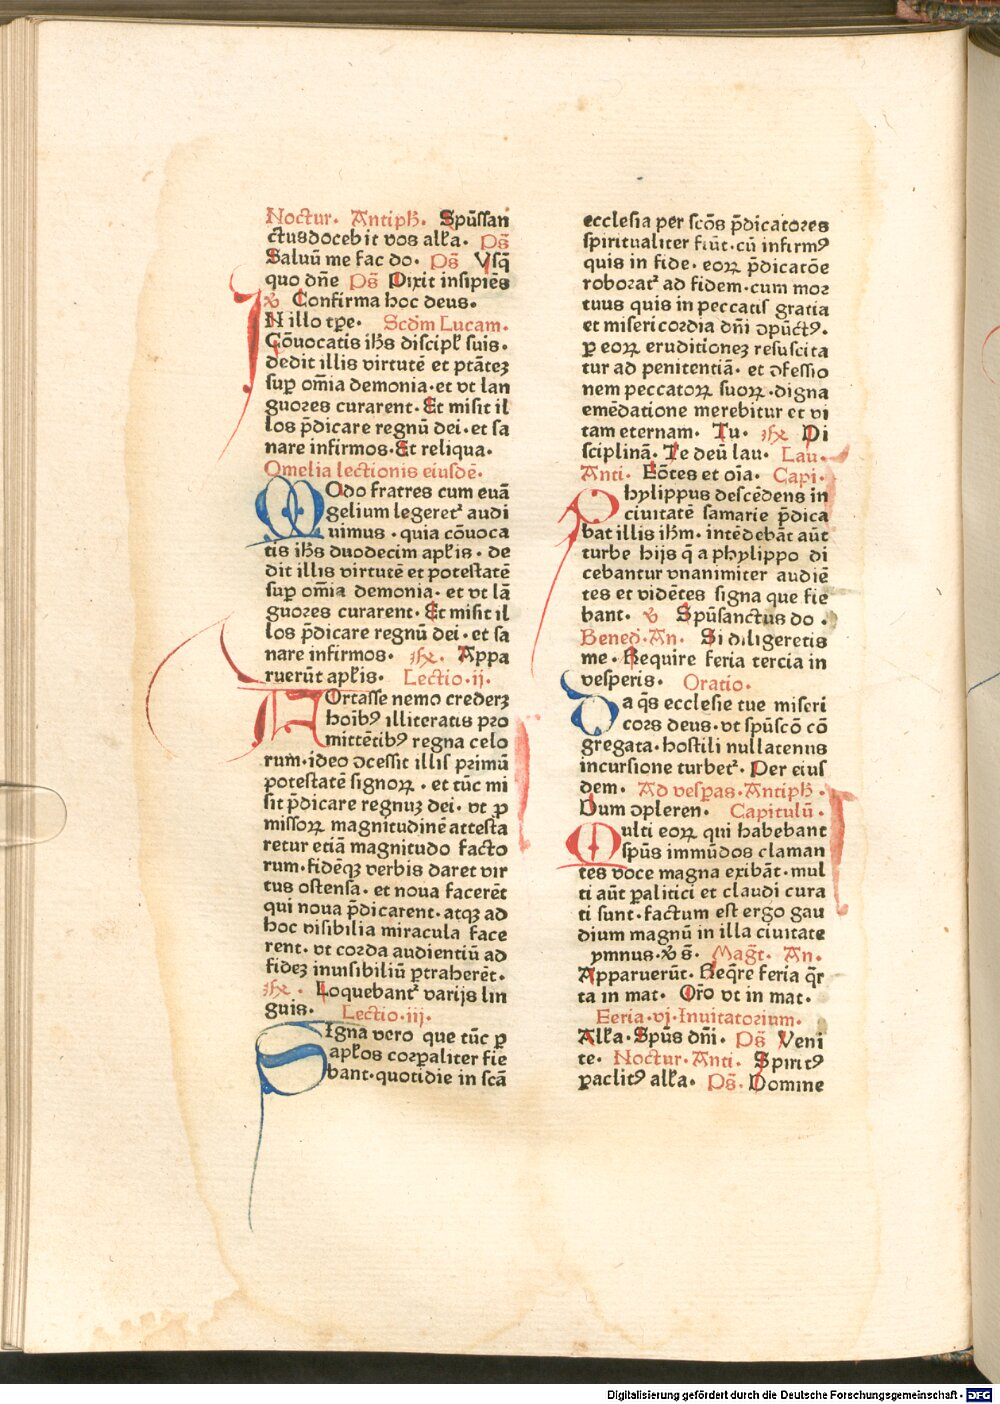 Noctur. Antiph. Spūssan
ctus docebit vos alľa. ps̄
Saluū me fac do. ps̄ Vsq̄
quo dn̄e ps̄ Dixit insipiēs
℣ Confirma hoc deus.
IN illo tp̄e. Scd̄m Lucam.
Cōuocatis ihs̄ discipl̕ suis.
dedit illis virtutē et ptātēꝫ
sup̱ om̄ia demonia. et vt lan
guores curarent. Et misit il
los p̄dicare regnū dei. et sa
nare infirmos. Et reliqua.
Omelia lectionis eiusdē.
MOdo fratres cum euā
gelium legeret᷑ audi
uimus. quia cōuoca
tis ihs̄ duodecim apľis. de
dit illis virtutē et potestatē
sup̱ om̄ia demonia. et vt lā
guores curarent. Et misit il
los p̄dicare regnū dei. et sa
nare infirmos. ℟. Appa
ruerūt apľis. Lectio.ij.
FOrtasse nemo crederꝫ
hoīb⁹ illiteratis pro
mittētib⁹ regna celo
rum. ideo ꝯcessit illis primū
potestatē signoꝝ. et tūc mi
sit p̄dicare regnuꝫ dei. vt ꝓ
missoꝝ magnitudinē attesta
retur etiā magnitudo facto
rum. fidēqꝫ verbis daret vir
tus ostensa. et noua facerēt
qui noua p̄dicarent. atqꝫ ad
hoc visibilia miracula face
rent. vt corda audientiū ad
fideꝫ inuisibiliū ꝑtraherēt.
℟. Loquebant᷑ varijs lin
guis. Lectio.iij.
SIgna vero que tūc ꝑ
apľos corꝑaliter fie
bant. quotidie in scā
ecclesia per scōs p̄dicatores
spiritualiter fiūt. cū infirm⁹
quis in fide. eoꝝ p̄dicatōe
roborat᷑ ad fidem. cum mor
tuus quis in peccatis gratia
et misericordia dn̄i ꝯpūct⁹.
ꝑ eoꝝ eruditioneꝫ resuscita
tur ad penitentiā. et ꝯfessio
nem peccatoꝝ suoꝝ. digna
emēdatione merebitur et vi
tam eternam. Tu. ℟ Di
sciplinā. Te deū lau. Lau.
Anti. Fōtes et oīa. Capi.
Phylippus descēdens in
ciuitatē samarie p̄dica
bat illis ihm̄. intēdebāt aūt
turbe hijs q̄ a phylippo di
cebantur vnanimiter audiē
tes et vidētes signa que fie
bant. ℣ Spūsanctus do.
Bened. An. Si diligeretis
me. Require feria tercia in
vesperis. Oratio.
Da q̄s ecclesie tue miseri
cors deus. vt spūscō cō
gregata. hostili nullatenus
incursione turbet᷑. Per eius
dem. Ad vesꝑas. Antiph.
Dum ꝯpleren. Capitulū.
Multi eoꝝ qui habebant
spūs immūdos claman
tes voce magna exibāt. mul
ti aūt ꝑalitici et claudi cura
ti sunt. factum est ergo gau
dium magnū in illa ciuitate
ymnus. ℣ s̄. Magt̄. An.
Apparuerūt. Req̄re feria q̄r
ta in mat. Or̄o vt in mat.
Feria.vj. Inuitatorium.
Alľa. Spūs dn̄i. ps̄ Veni
te. Noctur. Anti. Spirit⁹
ꝑaclit⁹ alľa. ps̄. Domine
Digitalisierung gefördert durch die Deutsche Forschungsgemeinschaft - DFG